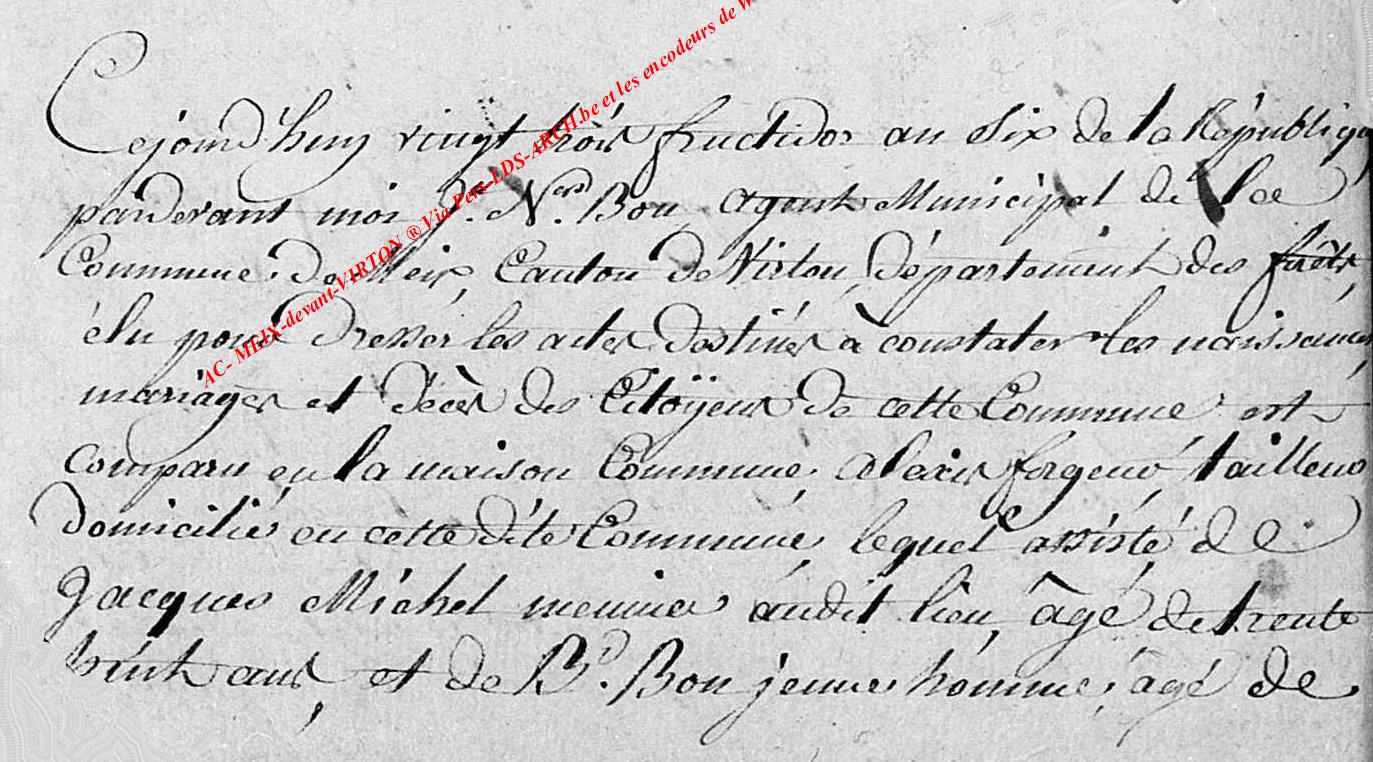 AC- MEIX-devant-VIRTON ® Via Pers-LDS-ARCH.be et les encodeurs de
Cejourd'huy vingt trois fructidor an six de la Républiq
pardevant moi J. N. Bon agent Municipal de la
Commune de Meix, Canton de Virton, département des forêts,
élu pour dresser les actes destinés à constater les naissances
mariages et décès des Citoÿens de cette Commune est
comparu en la maison Commune, alexis forgeur, tailleur
domicilié en cette dite Commune, lequel assisté de
Jacques Michel meunier audit lieu, âgé de trente
huit ans, et de Bd. Bon jeune homme, âgé de